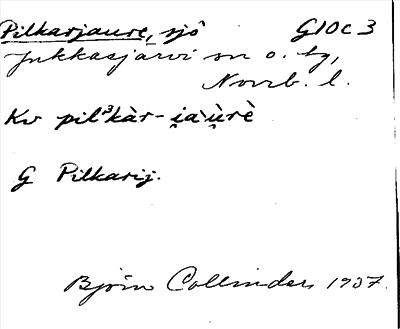 Pilkarjaure, sjö G10c3
Jukkasjärvi sn o. tg,
Norrb. l.
Kv pil³kàr-i̯a`u̯rè
G Pilkarij.
Björn Collinder 1937.